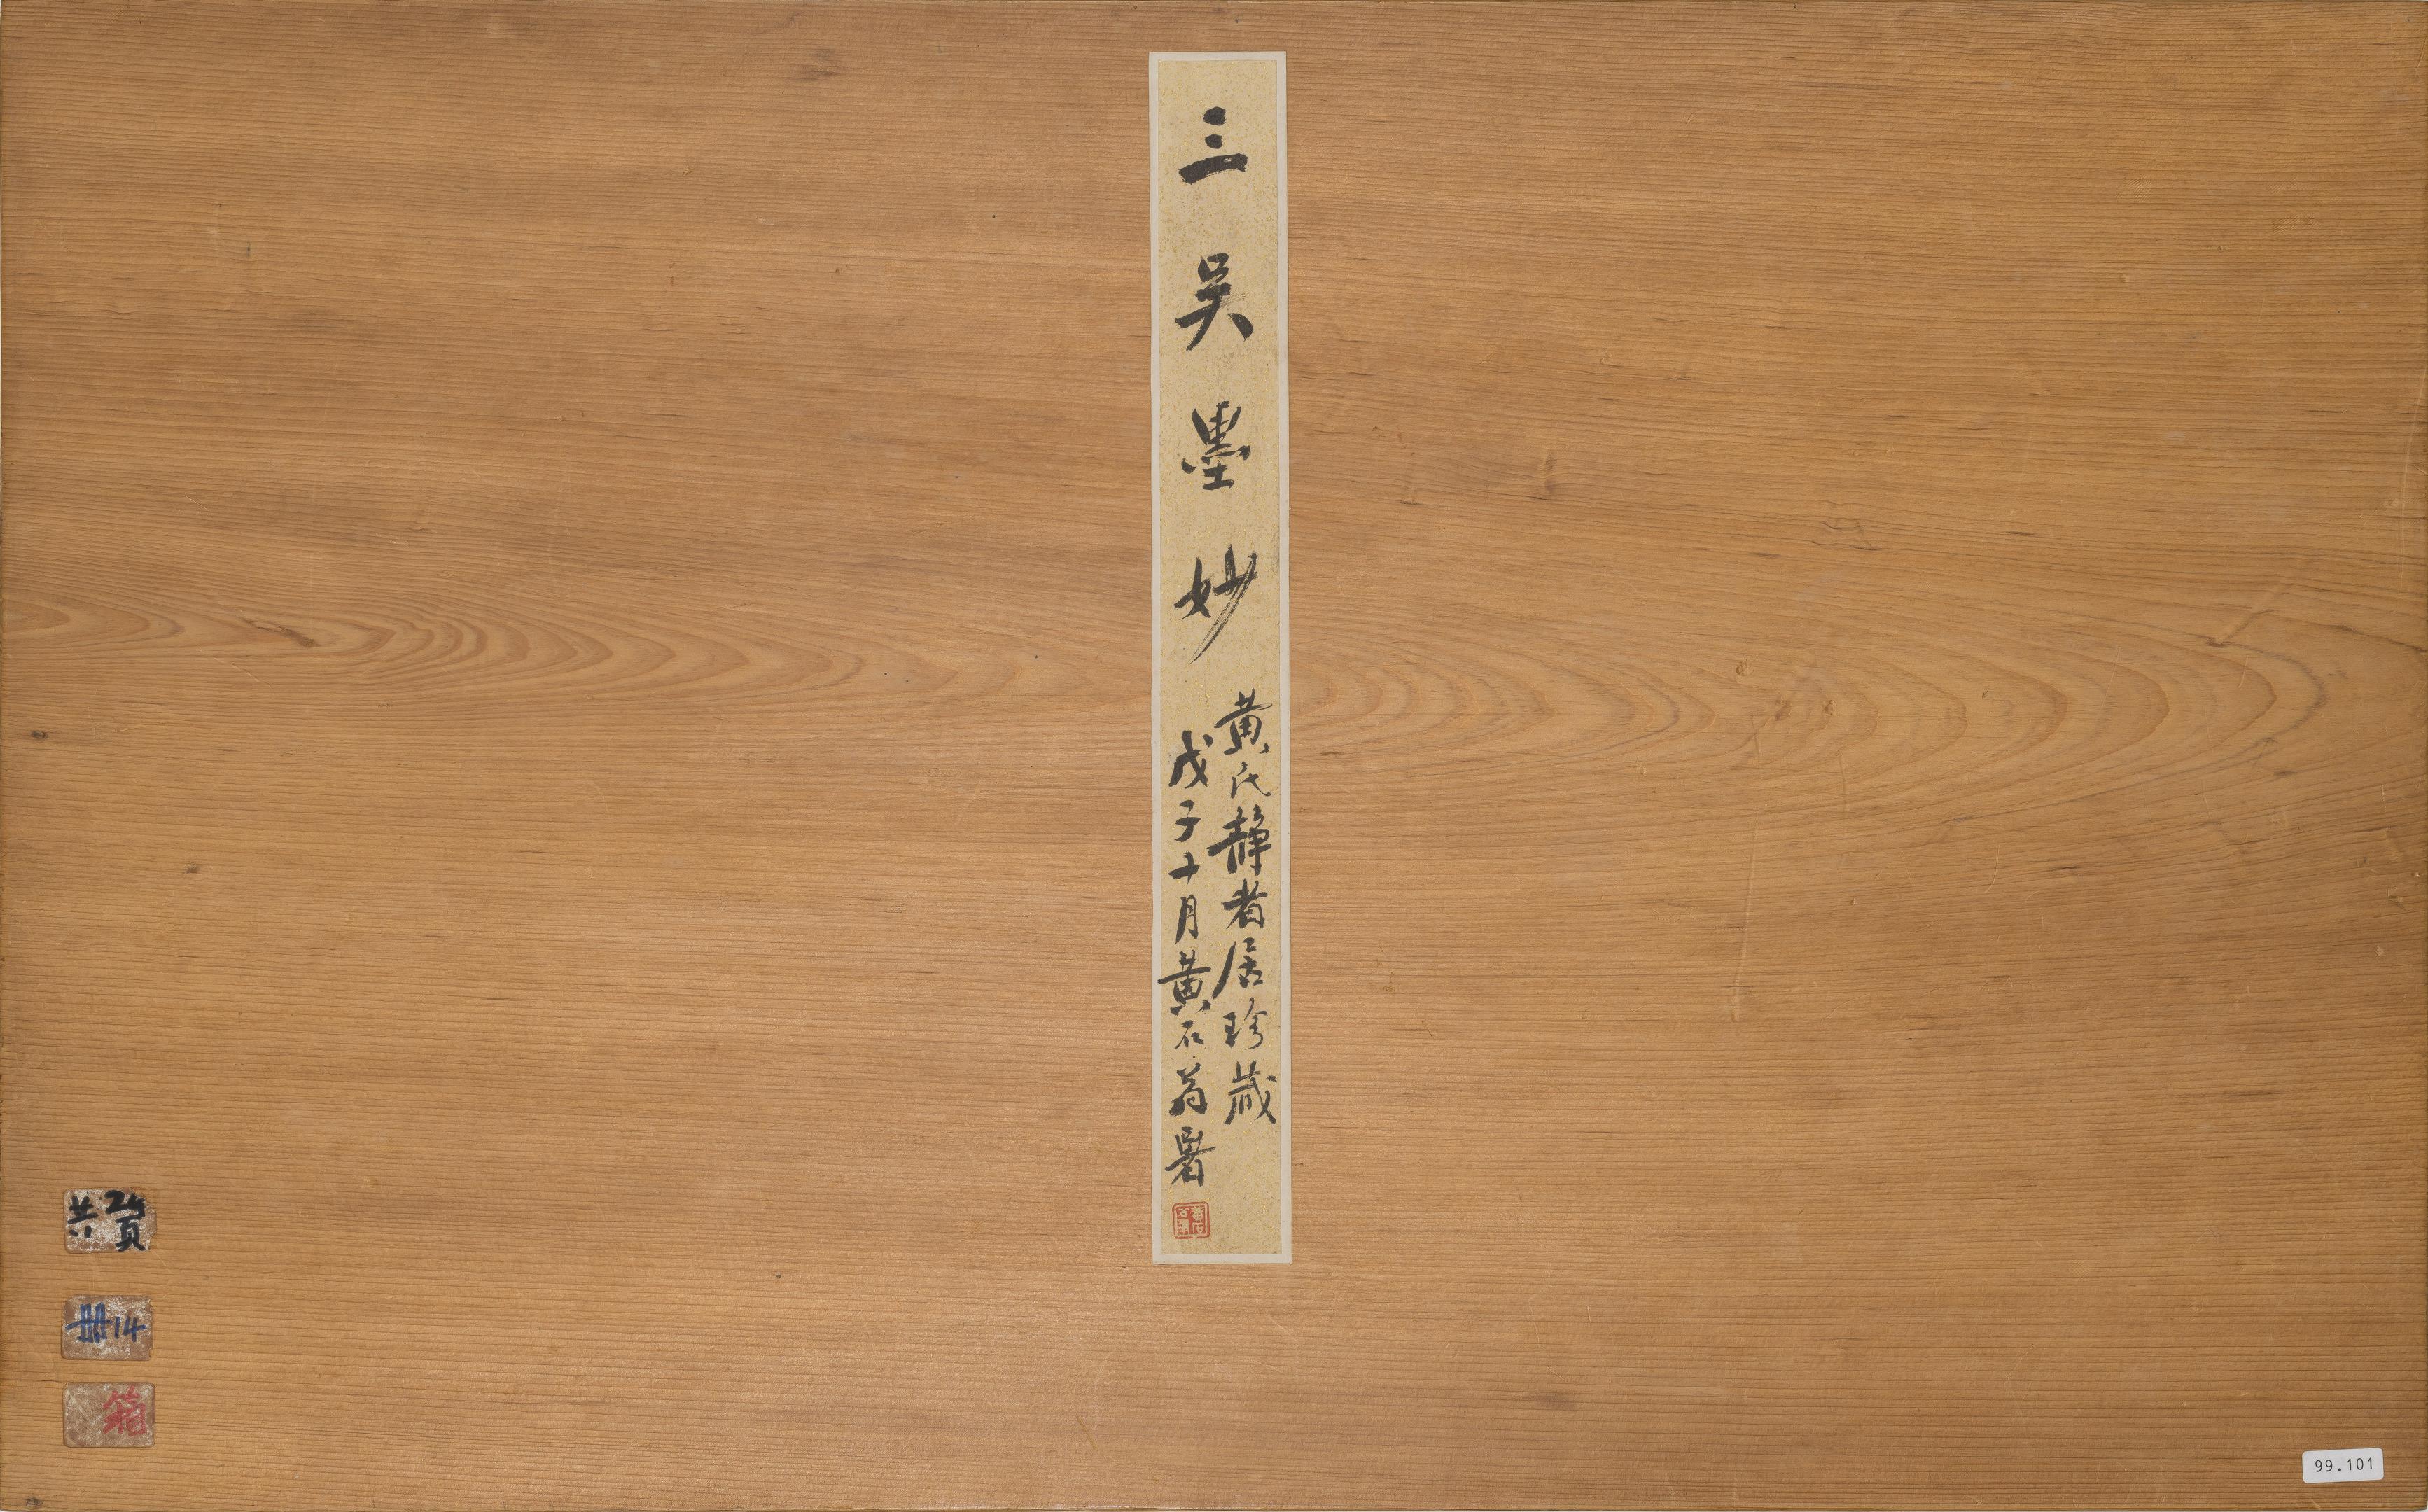 三吳墨妙
黃氏靜者居珍藏
戊子十月黃石翁署
共24頁
冊14
箱
99.101